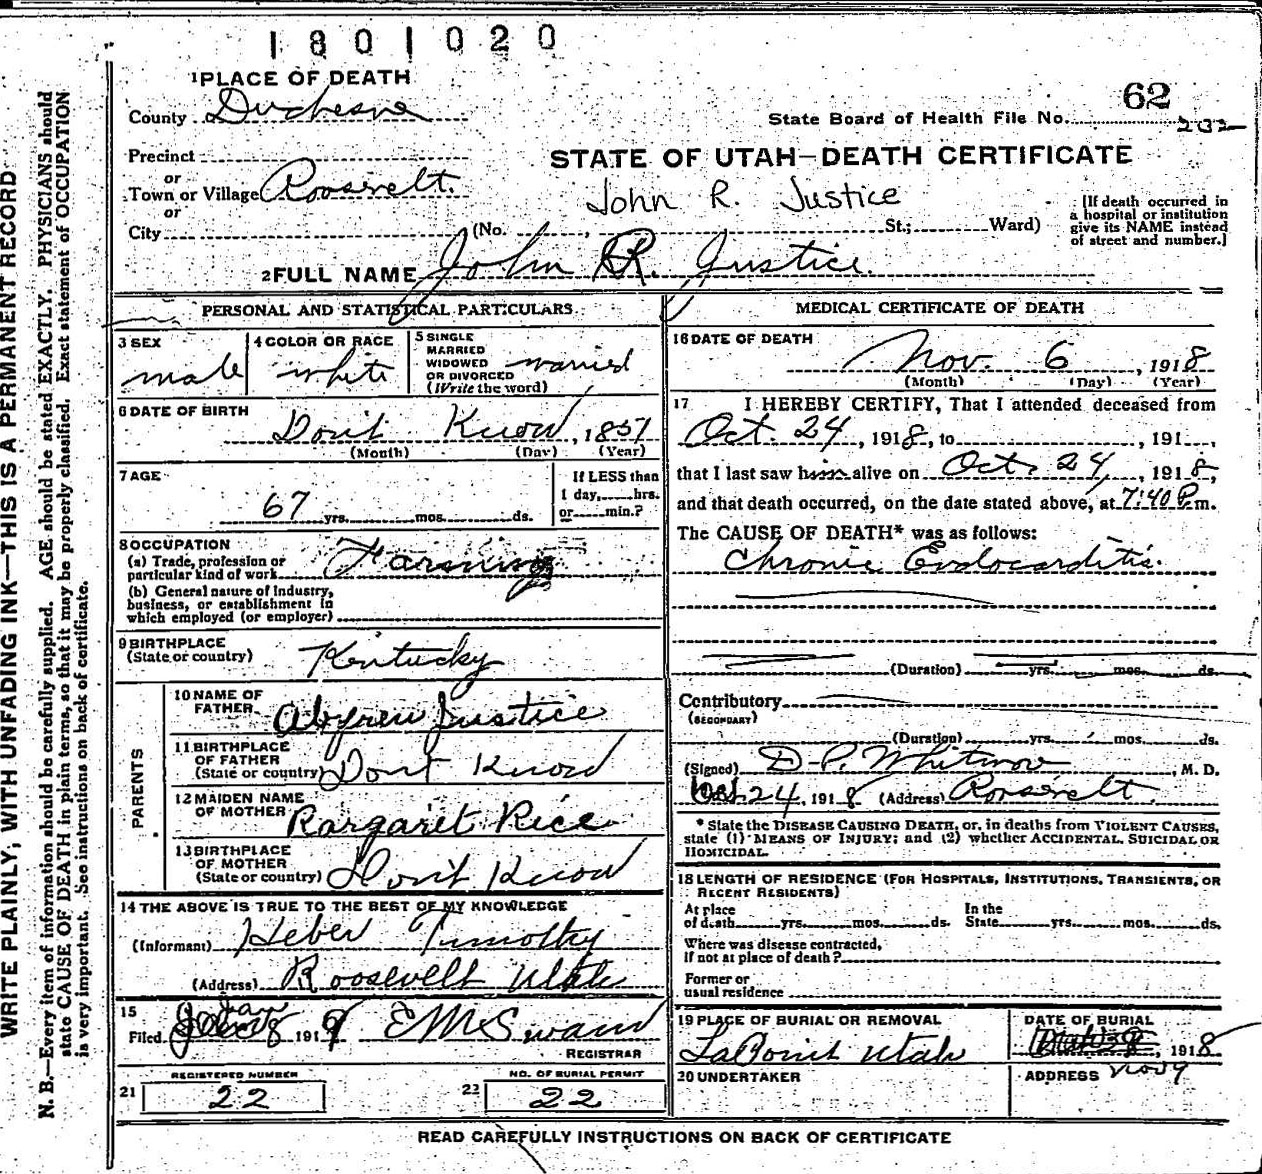 1801020
1 PLACE OF DEATH
County Duchesne
62
State Board of Health File No. 202
Precinct
or
Town or Village Roosevelt.
or
City (No. , St.; Ward)
STATE OF UTAH—DEATH CERTIFICATE
John R. Justice
[If death occurred in
a hospital or institution
give its NAME instead
of street and number.]
2 FULL NAME John R. Justice.
PERSONAL AND STATISTICAL PARTICULARS
3 SEX
male
4 COLOR OR RACE
white
5 SINGLE
MARRIED
WIDOWED
OR DIVORCED
(Write the word)
married
6 DATE OF BIRTH
Don't Know, 1851
(Month) (Day) (Year)
7 AGE
67 yrs. mos. ds.
If LESS than
1 day, hrs.
or min.?
8 OCCUPATION
(a) Trade, profession or
particular kind of work Farming
(b) General nature of industry,
business, or establishment in
which employed (or employer)
9 BIRTHPLACE
(State or country) Kentucky
PARENTS
10 NAME OF
FATHER Justice
11 BIRTHPLACE
OF FATHER
(State or country) Dont Know
12 MAIDEN NAME
OF MOTHER Rargaret Rice
13 BIRTHPLACE
OF MOTHER
(State or country) Don't Know
14 THE ABOVE IS TRUE TO THE BEST OF MY KNOWLEDGE
(Informant) Heber Timothy
(Address) Roosevelt Utah
15
Filed Jan 8 1919
REGISTRAR
21 REGISTERED NUMBER
22
22 NO. OF BURIAL PERMIT
22
MEDICAL CERTIFICATE OF DEATH
16 DATE OF DEATH
Nov. 6, 1918
(Month) (Day) (Year)
17 I HEREBY CERTIFY, That I attended deceased from
Oct. 24, 1918, to , 191 ,
that I last saw him alive on Oct. 24, 1918,
and that death occurred, on the date stated above, at 7:40 P.m.
The CAUSE OF DEATH* was as follows:
Chronic Endocarditis.
(Duration) yrs. mos. ds.
Contributory
(SECONDARY)
(Duration) yrs. mos. ds.
(Signed) D. P. Whitmore, M. D.
Oct 24, 1918 (Address) Roosevelt.
* State the DISEASE CAUSING DEATH, or, in deaths from VIOLENT CAUSES,
state (1) MEANS OF INJURY; and (2) whether ACCIDENTAL, SUICIDAL OR
HOMICIDAL.
18 LENGTH OF RESIDENCE (FOR HOSPITALS, INSTITUTIONS, TRANSIENTS, OR
RECENT RESIDENTS)
At place
of death yrs. mos. ds.
In the
State yrs. mos. ds.
Where was disease contracted,
if not at place of death?
Former or
usual residence
19 PLACE OF BURIAL OR REMOVAL
LaPoint Utah
DATE OF BURIAL
, 1918
Nov 9
20 UNDERTAKER
ADDRESS
READ CAREFULLY INSTRUCTIONS ON BACK OF CERTIFICATE
WRITE PLAINLY, WITH UNFADING INK—THIS IS A PERMANENT RECORD
N. B.—Every item of information should be carefully supplied. AGE should be stated EXACTLY. PHYSICIANS should
state CAUSE OF DEATH in plain terms, so that it may be properly classified. Exact statement of OCCUPATION
is very important. See instructions on back of certificate.